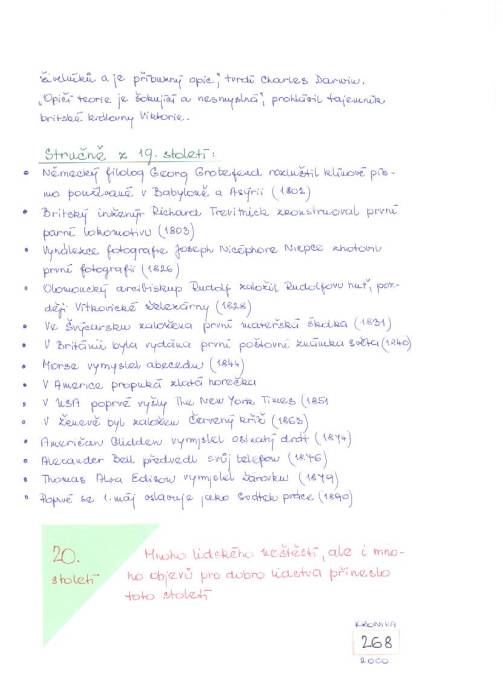 živelníků a je příbuzný opic", tvrdí Charles Darwin.
"Opičí teorie je šokující a nesmyslná", prohlásil tajemník
britské královny Viktorie.
Stručně z 19. století:
• Německý filolog Georg Grotefend rozluštil klínové pís-
mo používané v Babyloně a Asýrii (1802)
• Britský inženýr Richard Trevithick zkonstruoval první
parní lokomotivu (1803)
• Vynálezce fotografie Joseph Nicéphore Niepce zhotovil
první fotografii (1826)
• Olomoucký arcibiskup Rudolf založil Rudolfovu huť, poz-
ději Vítkovické železárny (1828)
• Ve Švýcarsku založena první mateřská školka (1831)
• V Británii byla vydána první poštovní známka světa (1840)
• Morse vymyslel abecedu (1844)
• V Americe propuká zlatá horečka
• V USA poprvé vyšly The New York Times (1851
• V Ženevě byl založen Červený kříž (1863)
• Američan Glidden vymyslel ostnatý drát (1874)
• Alexander Bell předvedl svůj telefon (1876)
• Thomas Alva Edison vymyslel žárovku (1879)
• Poprvé se 1. máj oslavuje jako Svátek práce (1890)
20.
století
Mnoho lidského neštěstí, ale i mno-
ho objevů pro dobro lidstva přineslo
toto století
KRONIKA
268
2000